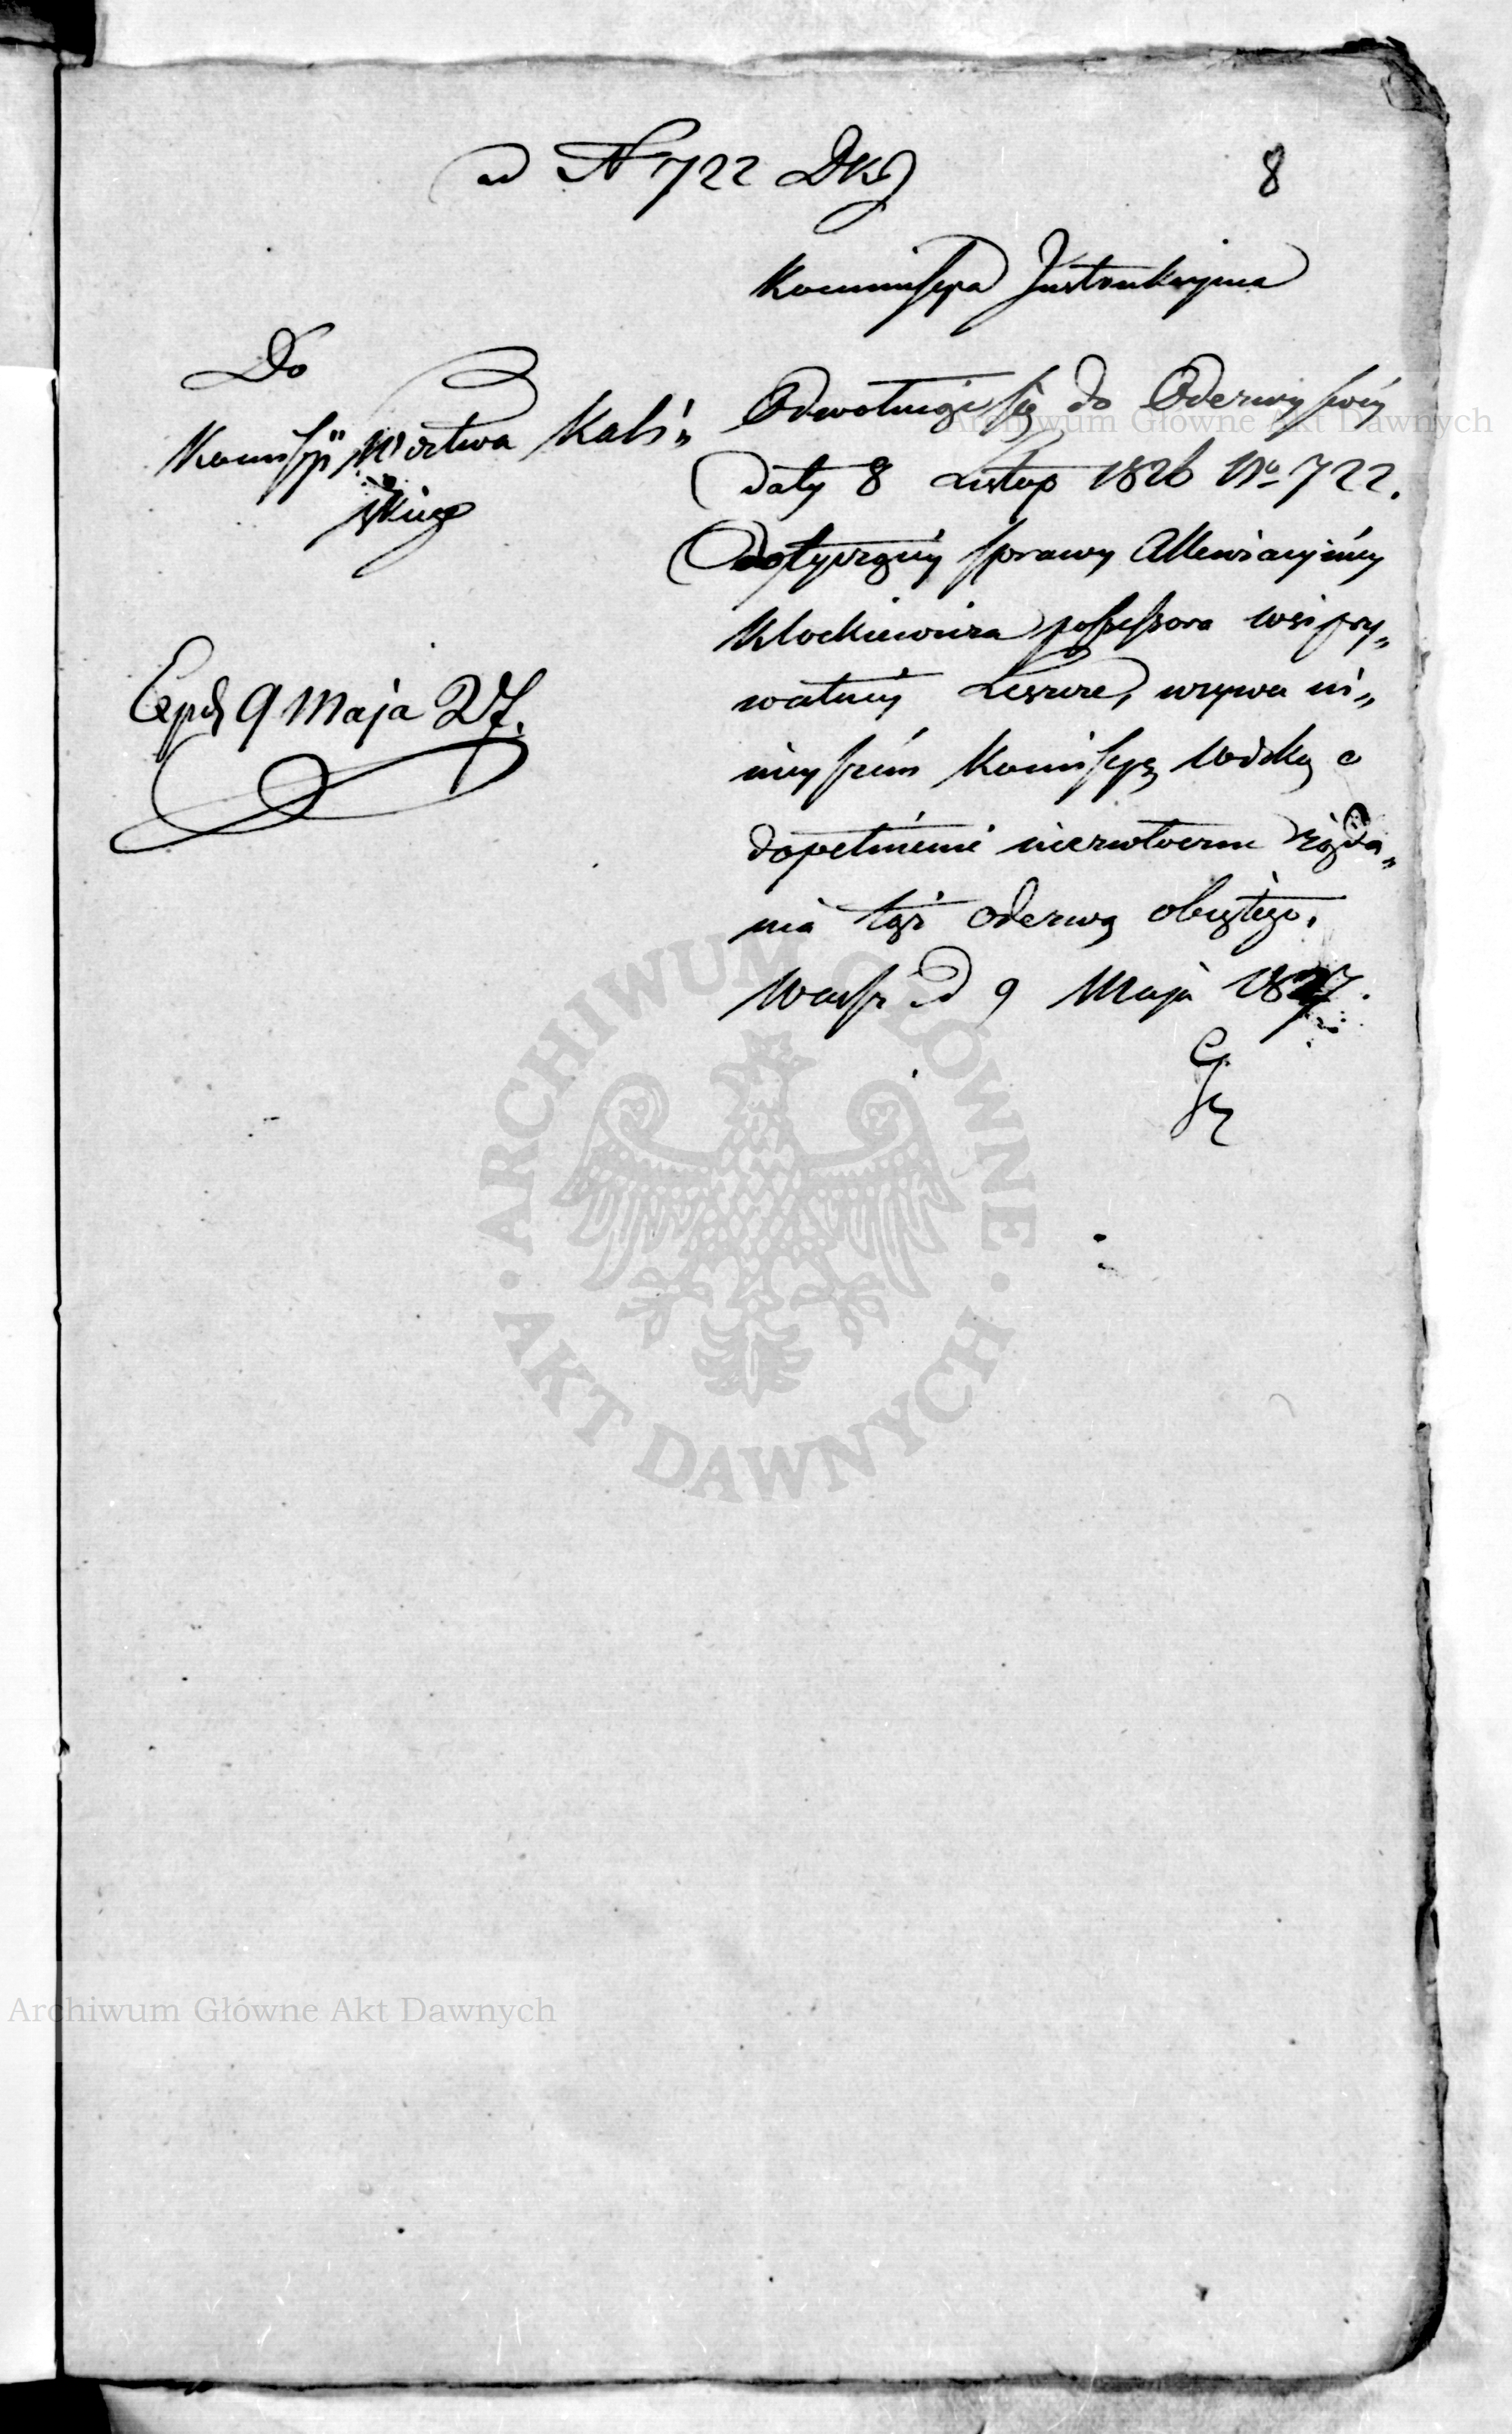 ad N 722 DKJ
8
Kommissya Instrukcyjna
Do
Komissyi Wodztwa Kali„
skiego
Exped 9 Maja 27.
Odwołuiąc się do Odezwy swéy
daty 8 Listop 1826 No 722.
dotyczącéy sprawy Allewiacyinéy
Klockiewicza possessora wsi pry„
watnéy Leszcze, wzywa ni„
nieyszém Komissyą Wdzką o
dopełnienie niezwłoczne żąda„
nia tąż odezwą obiętego.
Warsz d 9 Maja 1827.
Archiwum Główne Akt Dawnych
ARCHIWUM GŁÓWNE
AKT DAWNYCH
Archiwum Główne Akt Dawnych